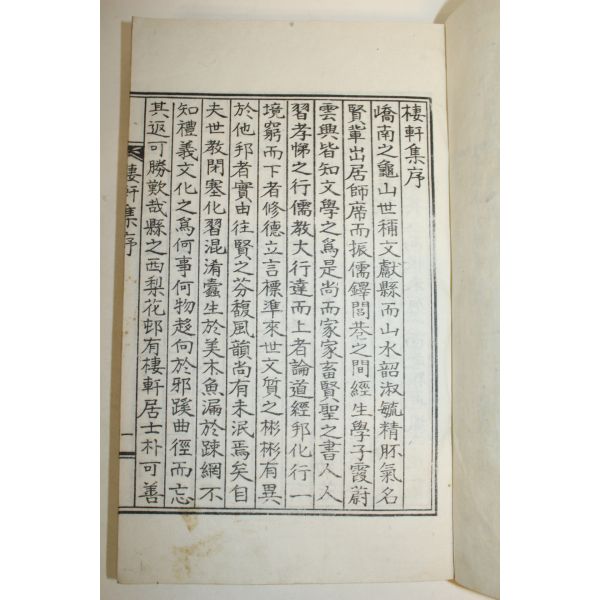 棲軒集序
嶠南之龜山世稱文獻縣而山水韶淑毓精胚氣名
賢輩出居師席而振儒鐸閭巷之間經生學子霞蔚
雲興皆知文學之爲是尚而家家畜賢聖之書人人
習孝悌之行儒教大行達而上者論道經邦化行一
境窮而下者修德立言標準來世文質之彬彬有異
於他邦者實由往賢之芬馥風韻尚有未泯焉矣自
夫世教閉塞化習混淆蠹生於美木魚漏於踈網不
知禮義文化之爲何事何物趍向於邪蹊曲徑而忘
其返可勝歎哉縣之西梨花邨有棲軒居士朴可善
棲軒集序
一